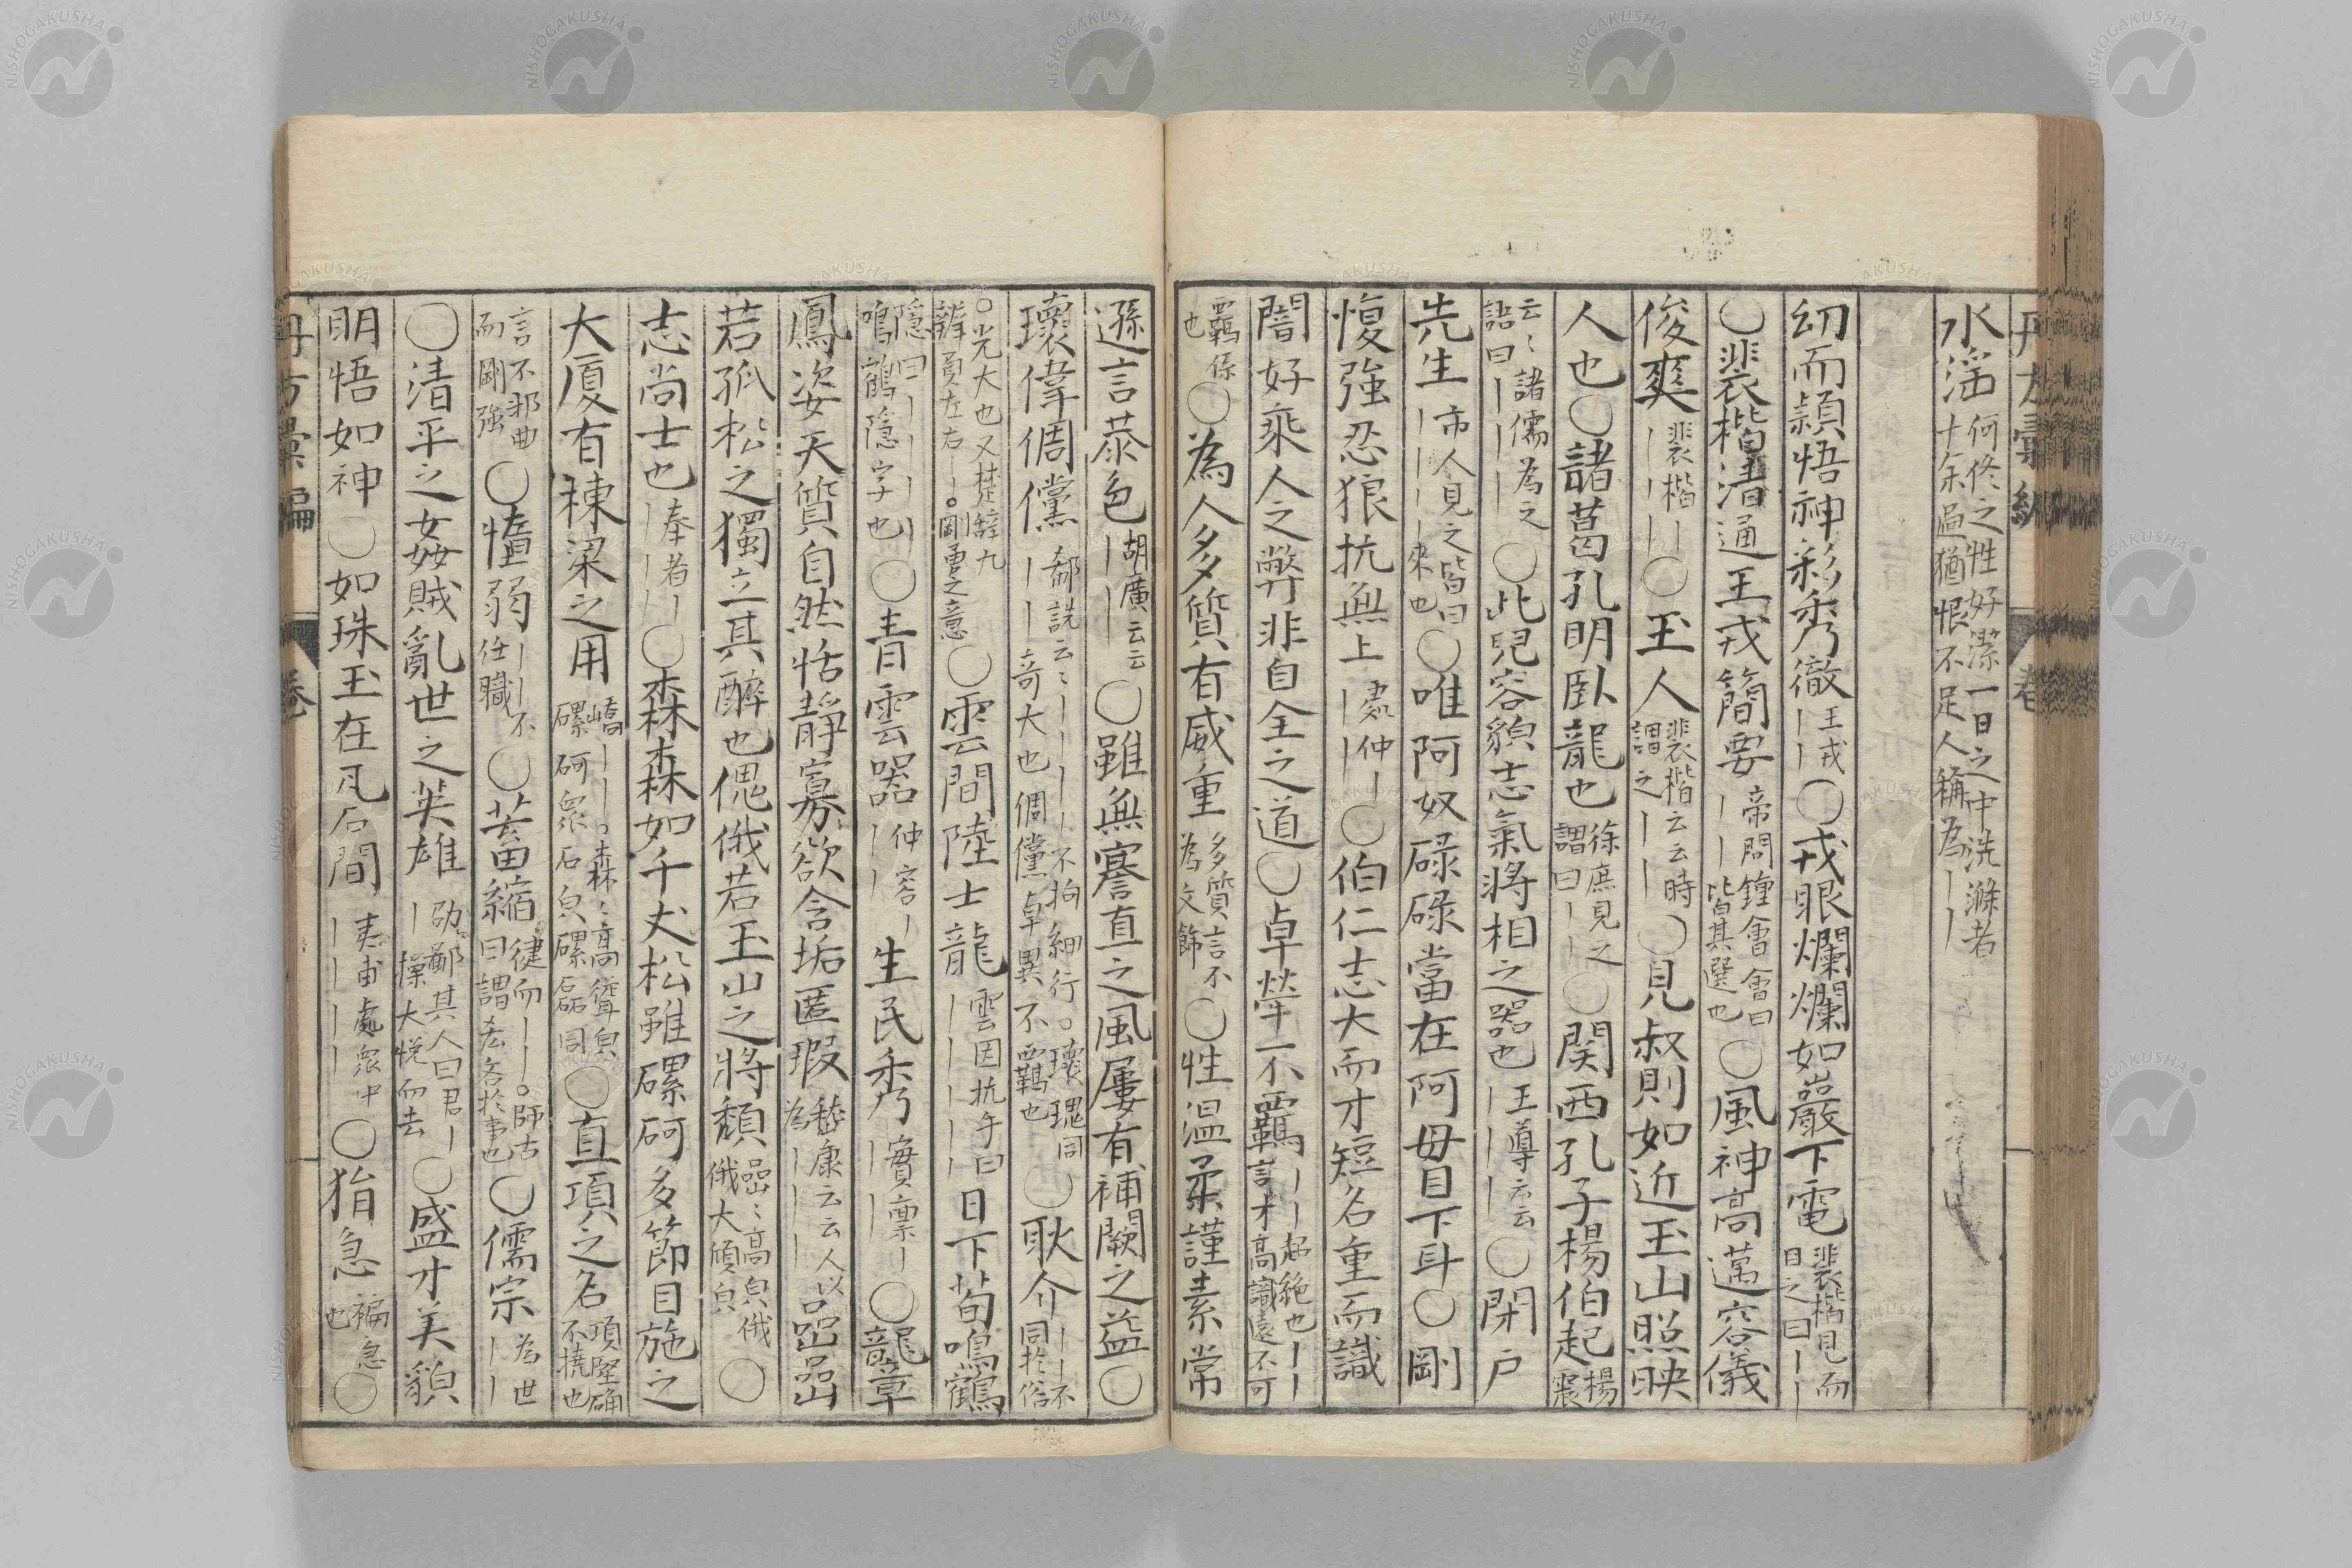 水淫 何佟之性好潔一日之中洗滌者十余過猶恨不足人稱為丨丨
幼而頴悟神彩秀徹 王戎丨丨 〇戎眼爛爛如巖下電 裴楷見而目之曰丨丨
〇裴楷清通王戎簡要 帝問鍾會會曰丨丨皆其選也 〇風神高邁容儀
俊爽 裴楷丨丨丨丨 〇玉人 裴楷云云時謂之丨丨 〇見叔則如近玉山照映
人也〇諸葛孔明臥龍也 徐庶見之謂曰丨丨 〇関西孔子楊伯起 楊震
云〻諸儒為之語曰丨丨丨 〇此兒容貌志氣將相之器也 王導云云丨丨丨 〇閉户
先生 市人見之皆曰丨丨丨丨來也 〇唯阿奴碌碌當在阿母目下耳〇剛
愎強忍狼抗無上 處仲丨丨丨 〇伯仁志大而才短名重而識
闇好乘人之弊非自全之道〇卓犖不羈 丨丨超絶也丨丨言才高識遠不可
羈係也 〇為人多質有威重 多質言不為文飾 〇性温柔謹素常
遜言恭色 胡廣云云丨丨 〇雖無謇直之風屢有補闕之益〇
瓌偉倜儻 郗詵云〻丨丨丨丨不拘細行。瓌瑰同丨丨奇大也倜儻卓異不羈也 〇耿介 丨丨不同於俗
。光大也又楚辭九辨員左右丨。剛勇之意 〇雲間陸士龍 雲因抗手曰丨丨丨丨丨 日下荀鳴鶴
隱曰丨丨丨丨丨鳴鶴隱字也 〇青雲器 仲容丨丨丨丨 生民秀 實稟丨丨丨 〇龍章
鳳姿天質自然恬靜寡欲含垢匿瑕 嵇康云云人以為丨丨丨丨 嵒嵒
若孤松之獨立其醉也傀俄若玉山之將頽 嵒〻高皃俄俄大傾皃 〇
志尚士也 奉者丨丨丨丨 〇森森如千丈松雖磥砢多節目施之
大厦有棟梁之用 嶠丨丨丨。森〻高聳皃磥砢衆石皃磥磊同 〇直項之名 項堅确不撓也
言不邪曲而剛強 〇愔弱 丨丨不任職 〇蓄縮 健而丨丨。師古曰謂於吝於事也 〇儒宗 為世丨丨
〇清平之姦賊亂世之英雄 劭鄙其人曰君丨丨操大悦而去 〇盛才美貌
明悟如神〇如珠玉在瓦石間 夷甫處衆中丨丨丨丨 〇狷急 褊急也 〇